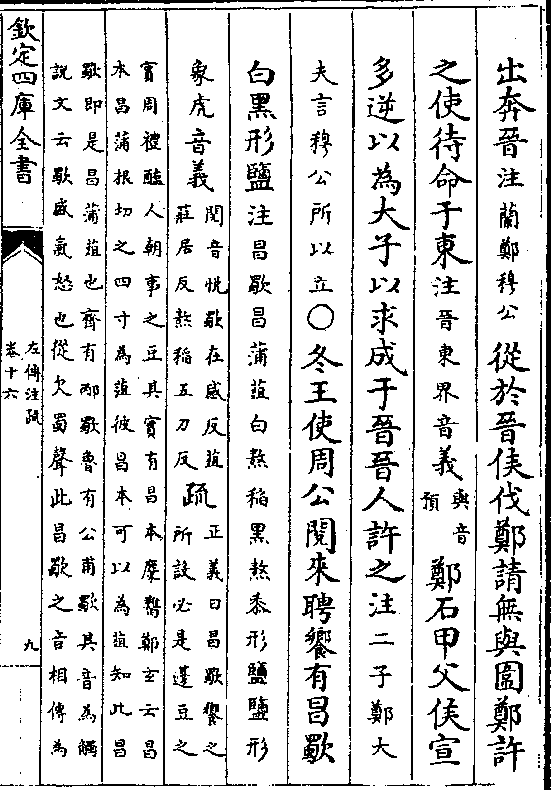 出奔晉注蘭鄭穆公從於晉侯伐鄭請無與圍鄭許
之使待命于東注晉東界音義與音預鄭石甲父侯宣
多逆以為大子以求成于晉晉人許之注二子鄭大
夫言穆公所以立○冬王使周公閱來聘饗有昌歜
白黑形鹽注昌歜昌蒲菹白熬稻黑熬黍形鹽鹽形
象虎音義閱音悅歜在感反菹莊居反熬稻五刀反疏正義曰昌歜饗之所設必是籩豆之
實周禮醢人朝事之豆其實有昌本麋臡鄭玄云昌
本昌蒲根切之四寸為菹彼昌本可以為菹知此昌
歜即是昌蒲菹也齊有邴歜魯有公甫歜其音為觸
說文云歜盛氣怒也從欠蜀聲此昌歜之音相傳為
欽定四庫全書
左傳注疏
卷十六
九